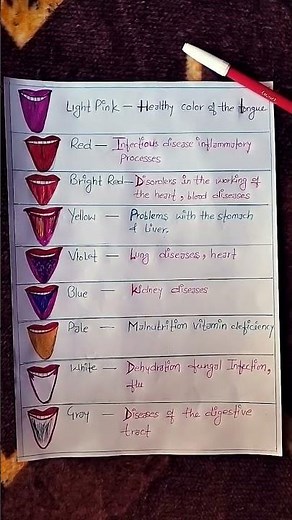 Light Pink — Healthy color of the tongue
Red — Infectious disease inflammatory
Processes
Bright Red — Disorders in the working of
the heart, blood diseases
Yellow — Problems with the stomach
& Liver.
Violet — Lung diseases, heart
Blue — Kidney diseases
Pale — Malnutrition vitamin deficiency
White — Dehydration fungal Infection,
flu
Gray — Diseases of the digestive
tract